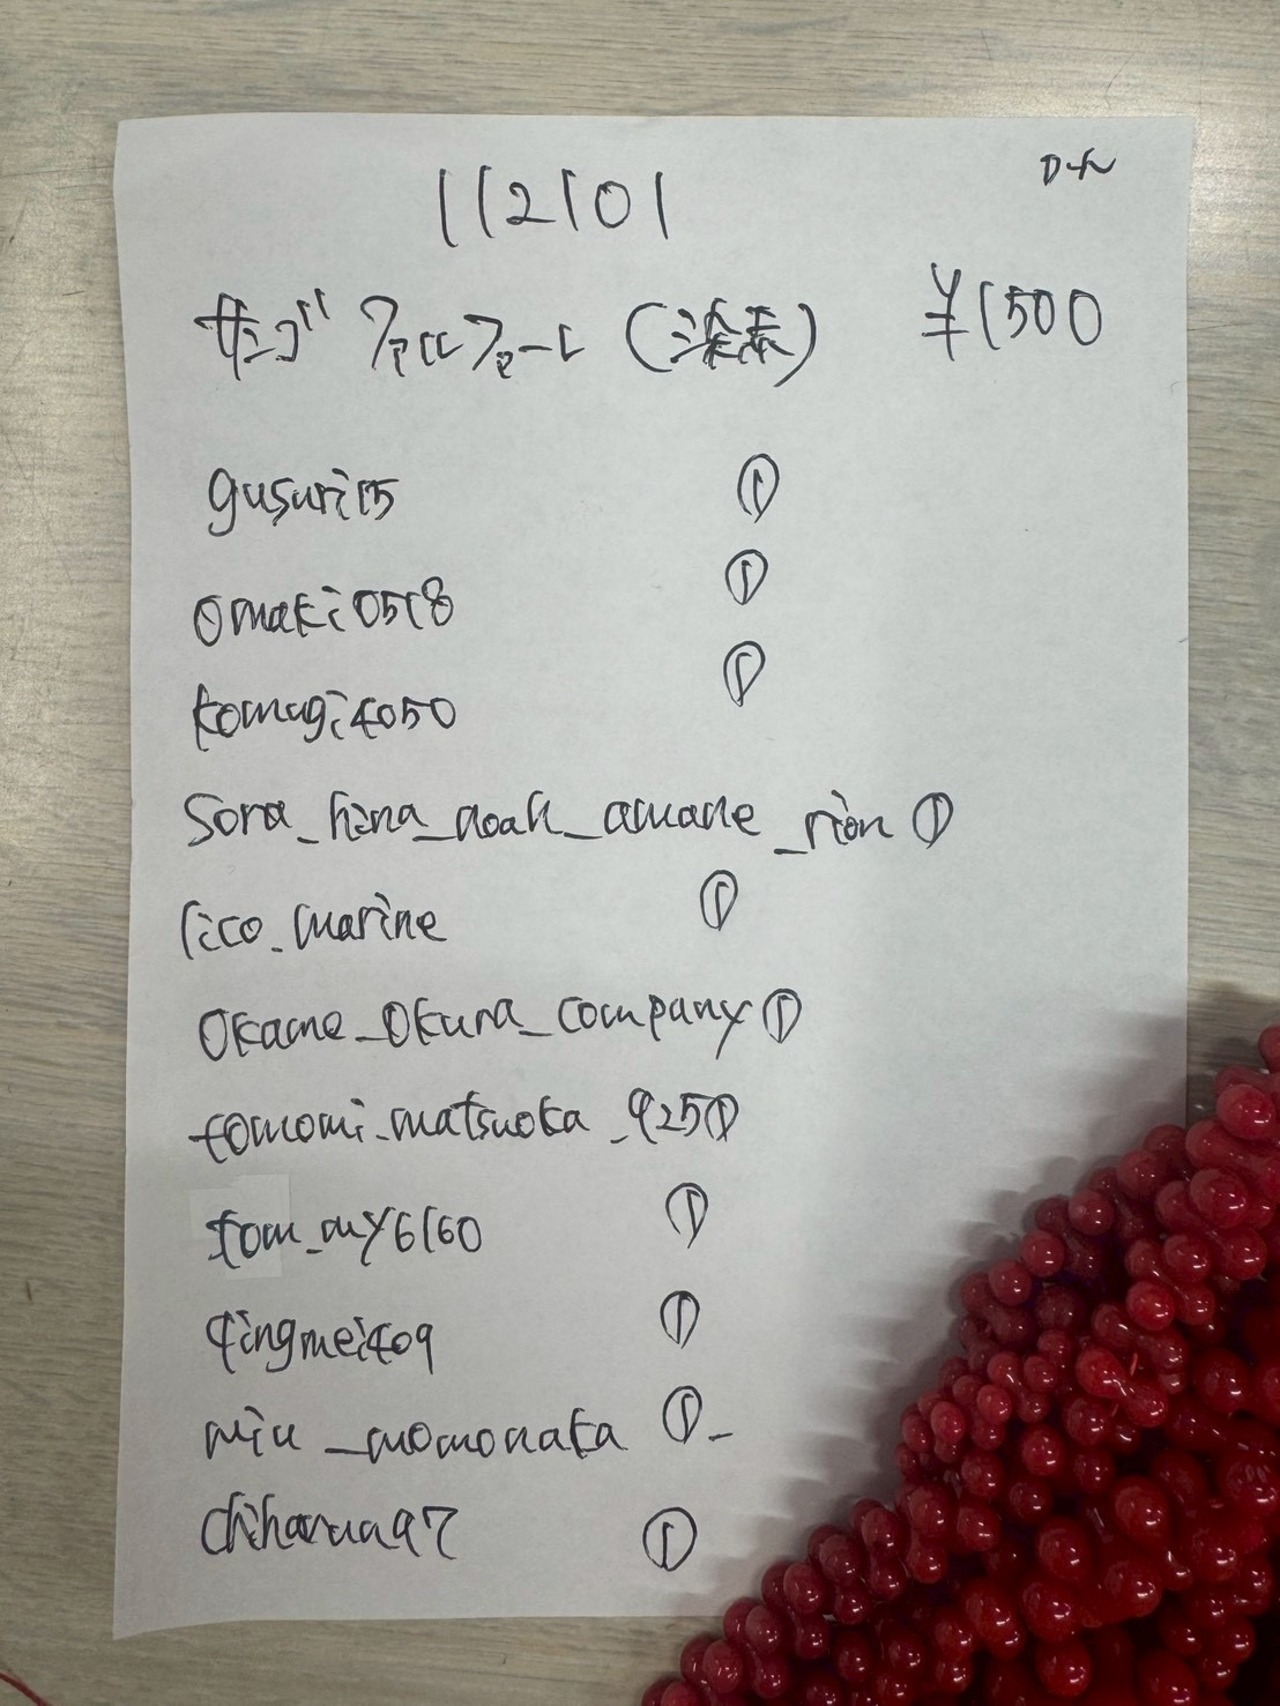 112101
サンゴ
(染赤)
¥1500
gusuri15 ①
omaki0518 ①
komugi4050 ①
sora_hina_noah_amane_rion ①
rico_marine ①
okame_okura_company ①
tomomi_matsuoka_925 ①
tom_my6160 ①
qingmei409 ①
miu_momonaka ①
chiharua97 ①